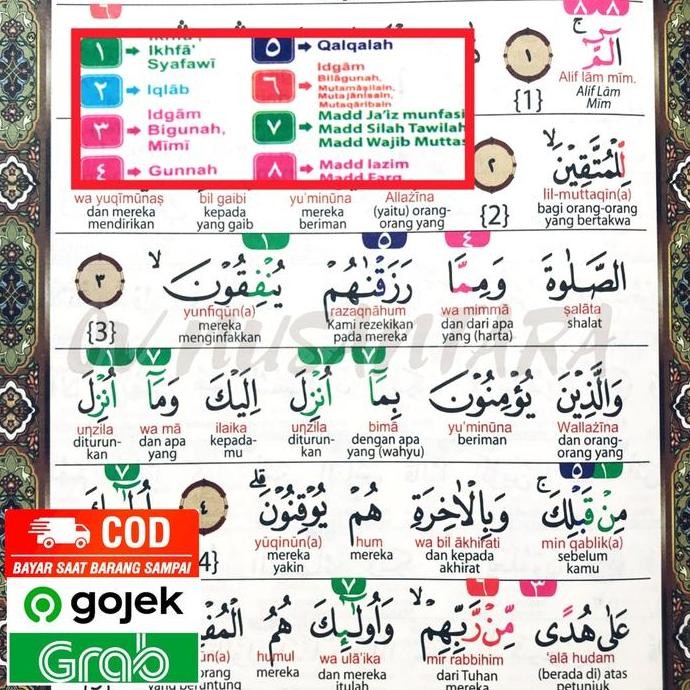 ٨ ٨
١ Ikhfā' Syafawī
٢ Iqlāb
٣ Idgām Bigunah, Mīmī
٤ Gunnah
٥ Qalqalah
٦ Idgām Bilāgunah, Mutamāṡilain, Mutajānisain, Mutaqāribain
٧ Madd Ja'iz munfasi
Madd Silah Tawilah
Madd Wajib Muttas
٨ Madd lazim
Madd Farq
الۤمّۤ ۚ ١
Alif lām mīm.
Alif Lām Mīm {1}
لِّلْمُتَّقِيْنَۙ ٢
lil-muttaqīn(a) {2} Allażīna yu'minūna bil gaibi wa yuqīmūnaṣ
bagi orang-orang yang bertakwa (yaitu) orang-orang yang mereka beriman kepada yang gaib dan mereka mendirikan
١ ٥ ٤
الصَّلٰوةَ وَمِمَّا رَزَقْنٰهُمْ يُنْفِقُوْنَۙ ٣
ṣalāta wa mimmā razaqnāhum yunfiqūn(a)
shalat dan dari apa yang (harta) Kami rezekikan pada mereka mereka menginfakkan {3}
١ ٧ ١ ٧
وَالَّذِيْنَ يُؤْمِنُوْنَ بِمَآ اُنْزِلَ اِلَيْكَ وَمَآ اُنْزِلَ
Wallażīna yu'minūna bimā unzila ilaika wa mā unzila
dan orang-orang yang beriman dengan apa yang (wahyu) diturun-kan kepada-mu dan apa yang diturun-kan
٧ ٥ ١
مِنْ قَبْلِكَۚ وَبِالْاٰخِرَةِ هُمْ يُوْقِنُوْنَۗ ٤ اُولٰۤىِٕكَ
min qablik(a) wa bil ākhirati hum yūqinūn(a)
sebelum kamu dan kepada akhirat mereka mereka yakin 4}
٧ ٦ ٣
عَلٰى هُدًى مِّنْ رَّبِّهِمْۙ وَاُولٰۤىِٕكَ هُمُ
'alā hudam mir rabbihim wa ulā'ika humul
(berada di) atas petunjuk dari Tuhan mereka dan mereka itulah mereka orang yang beruntung
COD
BAYAR SAAT BARANG SAMPAI
gojek
Grab